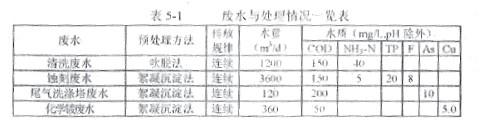 表 5-1 废水与处理情况一览表
废水 预处理方法 排放规律 水量(m³/d) 水质(mg/L,pH 除外)
COD NH₃-N TP F As Cu
清洗废水 吹脱法 连续 1200 150 40
蚀刻废水 絮凝沉淀法 连续 3600 150 5 20 8
尾气洗涤塔废水 絮凝沉淀法 连续 120 200 10
化学镀废水 絮凝沉淀法 连续 360 50 5.0